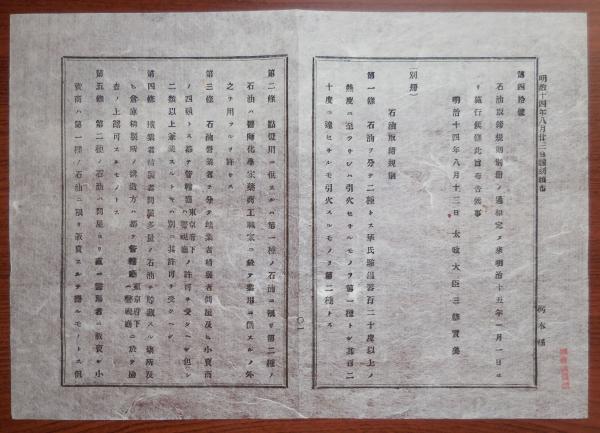 明治十四年八月廿三日
第四拾號
石油取締規則別冊ノ通相定メ來明治十五年一月一日ヨ
リ施行候條此旨布告候事
明治十四年八月十三日 太政大臣三條實美
(別冊)
石油取締規則
第一條 石油ヲ分テ二種トス華氏驗溫器百二十度以上ノ
熱度ニ至ラザレハ引火セサルモノヲ第一種トシ其百二
十度ニ達セサルモ引火スルモノヲ第二種トス
第二條 點燈用ニ供スルハ第一種ノ石油ニ限リ第二種ノ
石油ハ醫師化學家藥商工職家ニ於テ業用ニ供スルノ外
之ヲ用フルヲ許サス
第三條 石油營業者ヲ分テ礦業者精製者問屋及ヒ小賣商
ノ四類トス都テ管轄廳 東京府下ハ警視廳 ノ許可ヲ受クヘシ但シ
二類以上兼業スルトキハ別ニ其許可ヲ受クヘシ
第四條 礦業者精製者問屋多量ノ石油ヲ貯藏スル場所及
ヒ倉庫精製所ノ構造方ハ都テ管轄廳 東京府下ハ警視廳 ニ於テ檢
査ノ上認可スルモノトス
第五條 第二種ノ石油ハ問屋ヨリ直ニ需用者ニ販賣シ小
賣商ハ第一種ノ石油ニ限リ販賣スルヲ得ルモノトス但